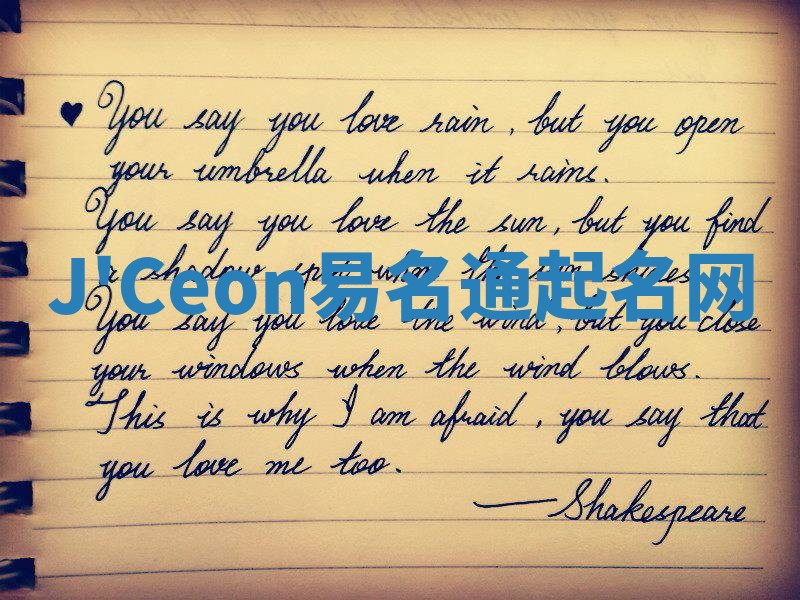 ♥ You say you love rain, but you open
your umbrella when it rains.
You say you love the sun, but you find
a shadow spot when the sun shines.
J'Ceon易名通起名网
You say you love the wind, but you close
your windows when the wind blows.
This is why I am afraid, you say that
you love me too.
—Shakespeare